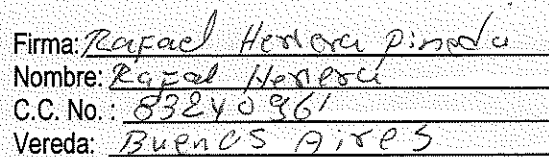 Firma: Rafael Herrera pineda
Nombre: Rafael Herrera
C.C. No. : 83240961
Vereda: Buenos Aires